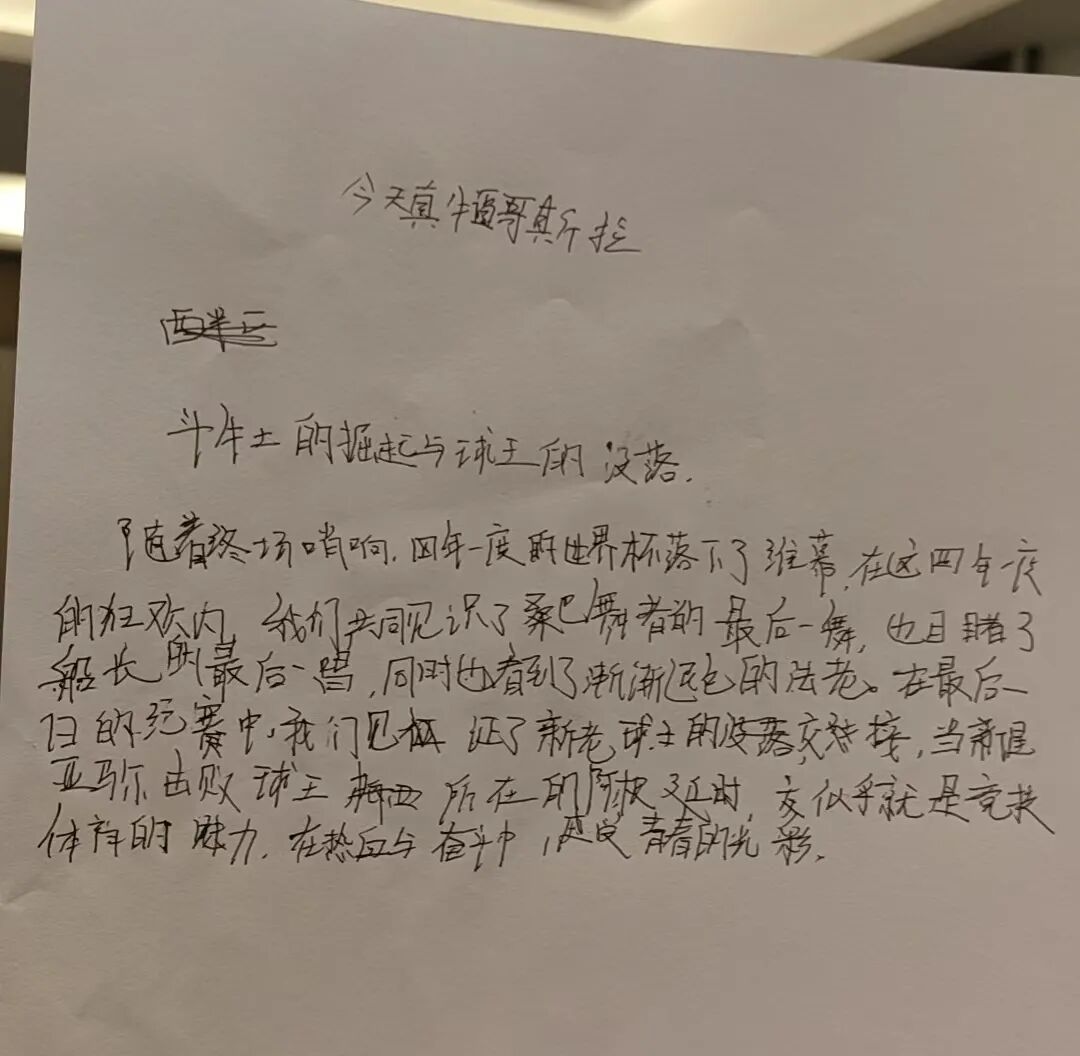 今天真牛逼哥斯拉
斗牛士的掘起与球王的没落.
随着终场哨响.四年一度的世界杯落下了帷幕,在这四年一度
的狂欢内,我们共同见识了桑巴舞者的最后一舞,也目睹了
船长的最后一踢,同时也看到了渐渐远去的法老。在最后一
日的决赛中,我们见证了新老球王的交接,当新星
亚马尔击败球王梅西所在的阿根廷时,这似乎就是竞技
体育的魅力.在热血与奋斗中,迸发青春的光影.